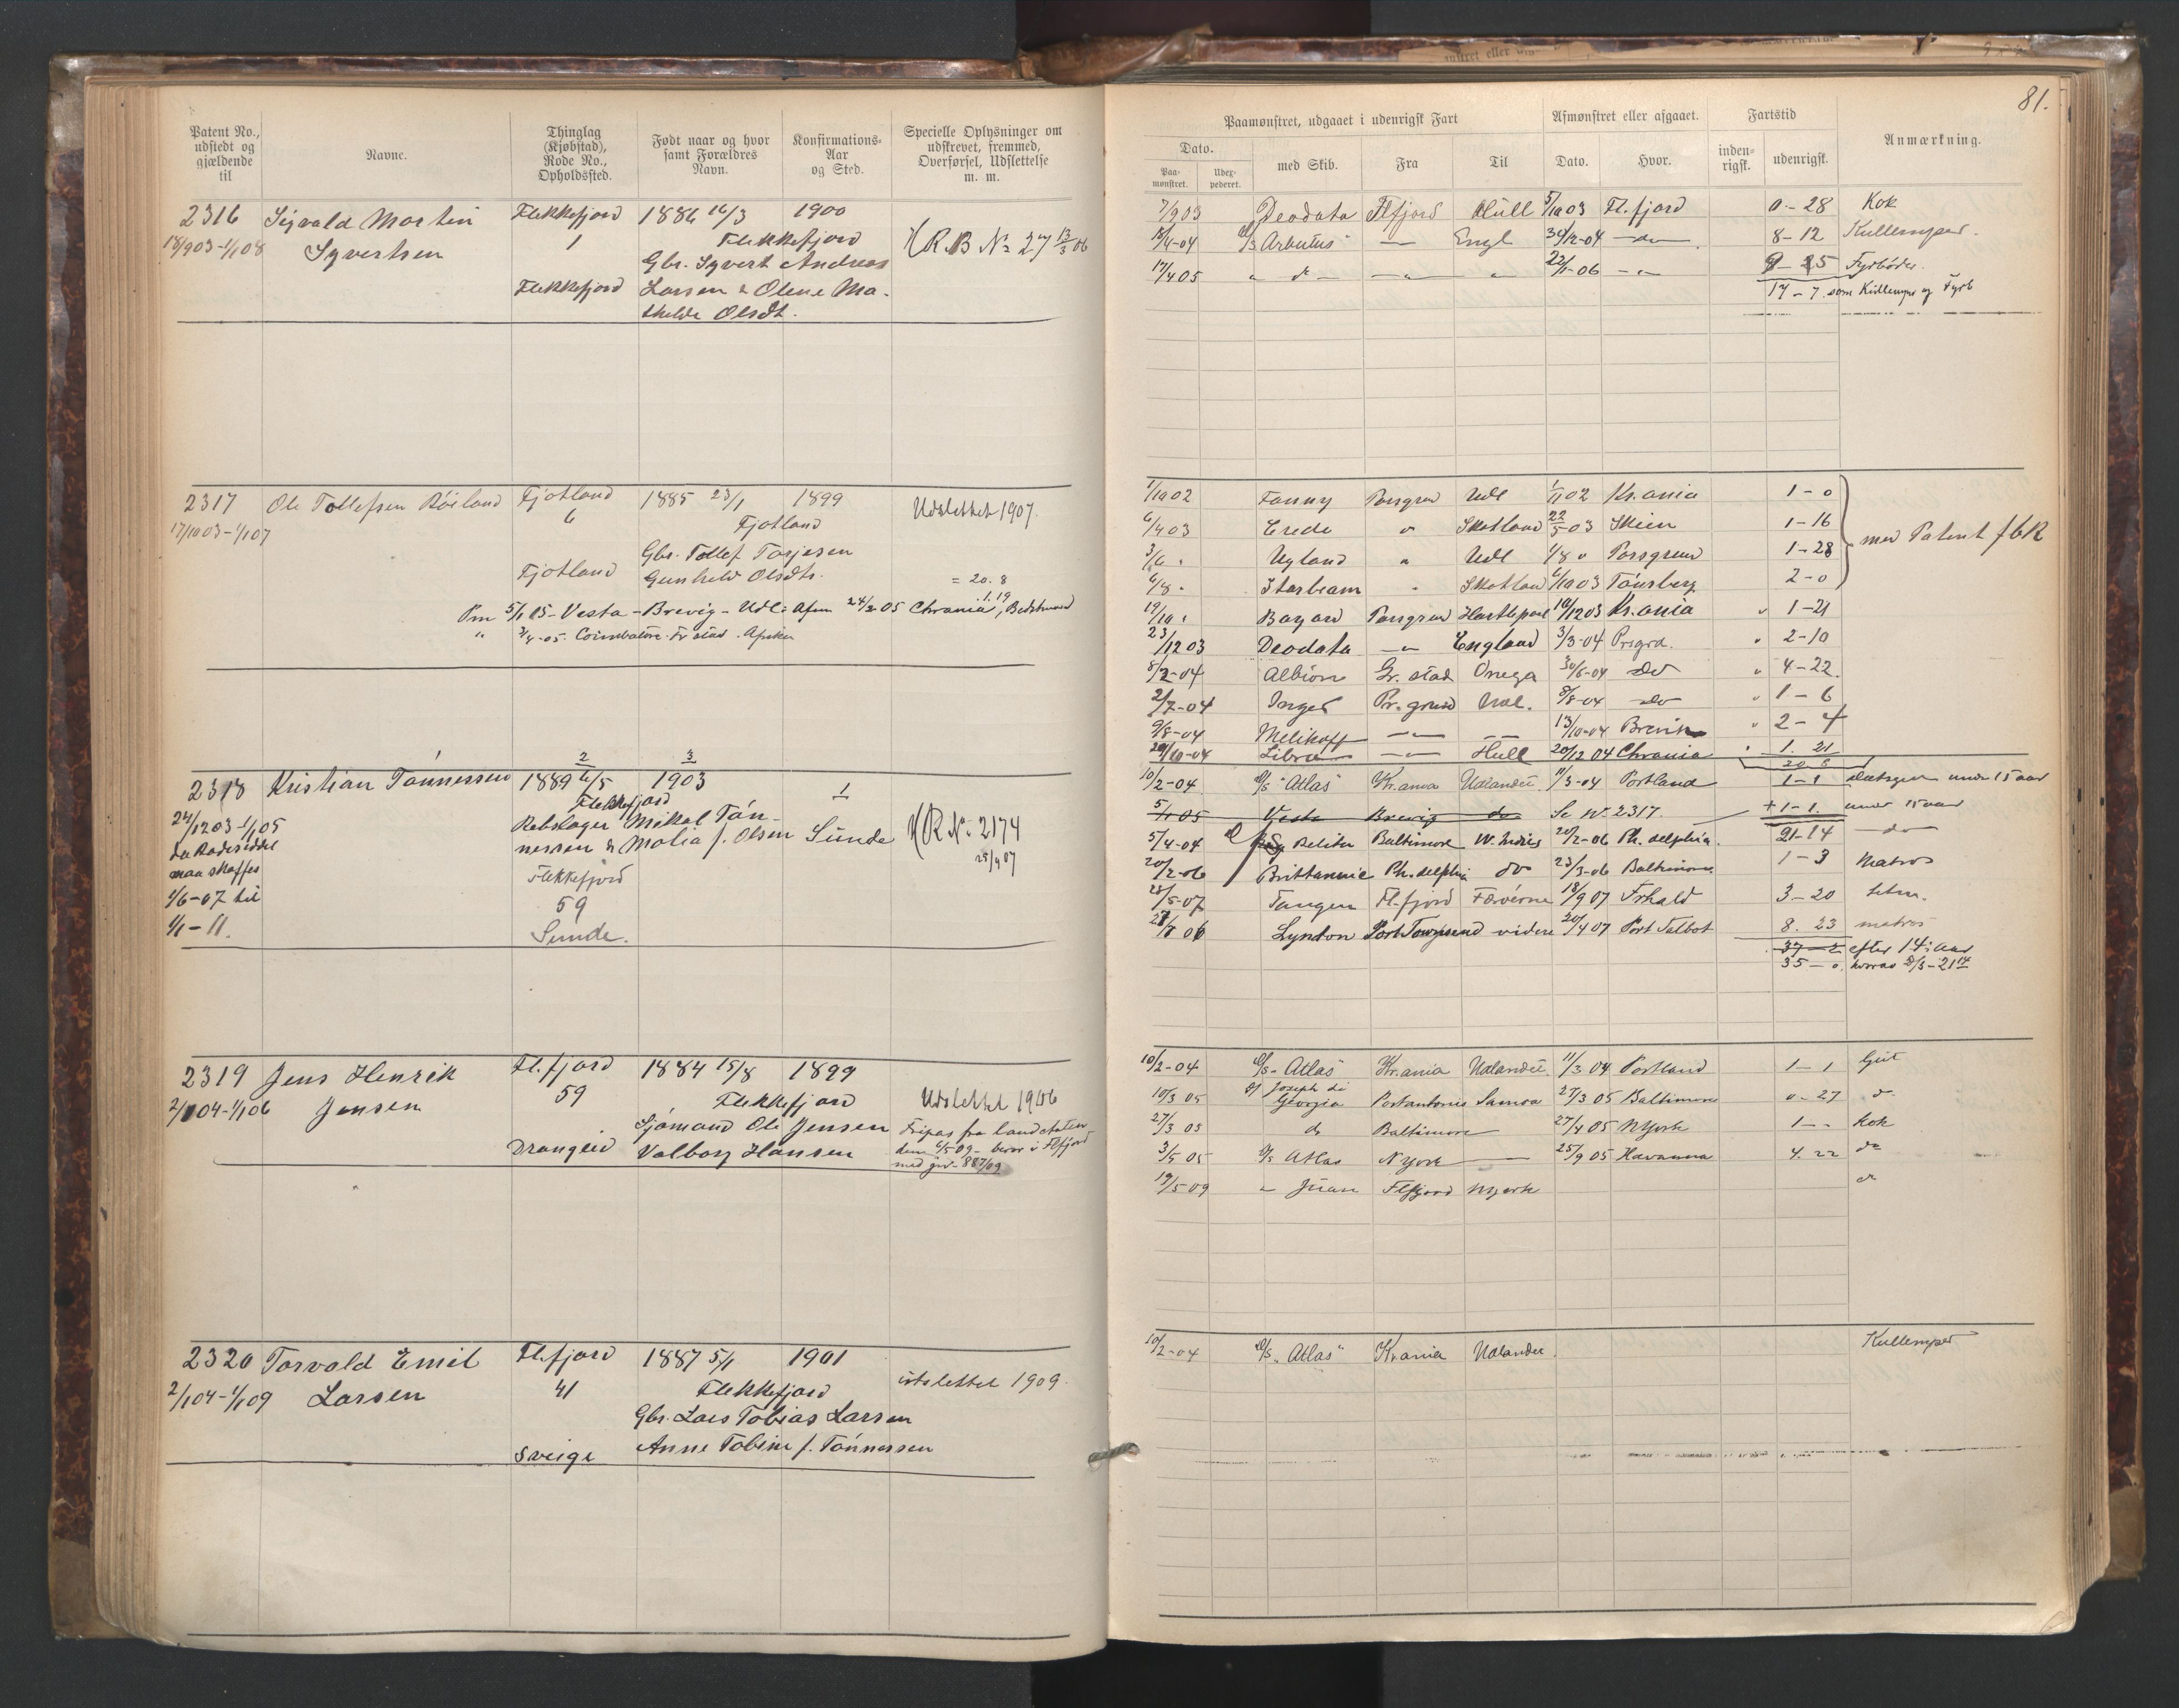 81.
Patent No., udstedt og gjældende til
Navne.
Thinglag (Kjøbstad), Rode No., Opholdssted.
Født naar og hvor samt Forældres Navn.
Konfirmations-Aar og Sted.
Specielle Oplysninger om udskrevet, fremmed, Overførsel, Udslettelse m. m.
Paamønstret, udgaaet i udenrigsk Fart
Afmønstret eller afgaaet.
Fartstid
Anmærkning.
Dato.
Paa-mønstret.
Udex-pederet.
med Skib.
Fra
Til
Dato.
Hvor.
inden-rigsk.
udenrigsk.
2316 Sigvald Martin Flekkefjord 1886 16/3 1900
18/9 03-1/1 08 Syvertsen 1 Flekkefjord
R.B No 27 13/3 06
Gbr. Syvert Andreas
Flekkefjord Larsen & Olene Ma-
thilde Olsdt.
7/9 03 Deodata Flfjord Hull 5/10 03 Fl.fjord 0-28 Kok
Arbutus Engl 8-12 Kullemper.
17/4 05 " do " 22/1-06 Fyrbøder.
17-7 som Kullemper og Fyrb
2317 Ole Tollefsen Røiland Fjotland 1885 23/1 1899 Udslettet 1907.
17/10 03-1/1 07 6 Fjotland
Gbr. Tollef Tarjesen
Fjotland Gunhild Olsdtr. = 20.8
Pm 5/1 05-Vesta-Brevig-Udl: Afm 24/2 05 Chrania 1.19, Bedstmand
" 3/4-05. Coimbatore. Fr stad. Afrika
1/10 02 Fanny Porsgrd Udl 1/11 02 Kr.ania 1-0
6/4 03 Crede " Skotland 22/5-03 Skien 1-16 med Patent f 6R
3/6 " Ugland " Udl 1/8 " Porsgrund 1-28
6/8 " Starbeam " Skotland 6/10 03 Tønsberg 2-0
19/10 " Bayard Porsgrund Hartlepool 10/12 03 Kr.ania " 1-21
23/12 03 Deodata England 3/3-04 Prsgrd. " 2-10
8/2-04 Albion Gr. stad Onega 30/6-04 do " 4-22
2/7-04 Inger Pr.grund Udl. 8/8-04 do " 1-6
9/8-04 Melikoff 13/10-04 Brevik " 2-4
20/10-04 Libra Hull 20/12 04 Chrania " 1.21
20.8
2318 Kristian Tønnessen 1889 6/5 1903
2 3 1
24/12 03-1/1 05 Flekkefjord
Rebslager Mikal Tøn-
nessen & Malia f. Olsen Sunde
R No 2174
25/9 07
Ltr Rodeseddel
maa skaffes
1/6-07 til
1/1-11.
Flekkefjord
59
Sunde.
10/2-04 D/S "Atlas" Kr.ania Udlandet 11/3-04 Portland 1-1 Dæksgut under 15 aar
5/1 05 Vesta Brevig do Se No 2317. +1-1. under 15 aar
5/4-04 Baltimore W. Indies 20/2-06 Ph. delphia. 21-14 do
20/2-06 Brittannic Ph. delphia do 23/3-06 Baltimore 1-3 Matros
28/5-07 Tangen Fl.fjord Færøerne 18/9 07 Frhald 3-20
Lyndon Port Townsend videre 20/4 07 Port Talbot 8.23 matros
37-2 efter 14: aar
35-0. hvorav
2319 Jens Henrik Fl.fjord 1884 15/8 1899
2/1 04-1/1 06 Jensen 59 Flekkefjord Udslettet 1906
Sjømand Ole Jensen
Drangeid Valborg Hansen
Fripas fra landstaten
10/2-04 D/S "Atlas" Kr.ania Udlandet. 11/3 04 Portland 1-1 Gut
10/3 05 Joseph di Georgia Portantonio Samoa 27/3 05 Baltimore 0-27 do
27/3 05 do Baltimore 27/4 05 NYork 1-- Kok
3/5 05 D/S Atlas N York 25/9 05 Havanna 4.22 do
19/5 09 " Juan Flfjord NYork do
2320 Torvald Emil Fl.fjord 1887 5/1 1901
2/1 04-1/1 09 Larsen 41 Flekkefjord utslettet 1909.
Gbr. Lars Tobias Larsen
Sveige Anne Tobine f. Tønnessen
10/2-04 D/S "Atlas" Kr.ania Udlandet. Kullemper